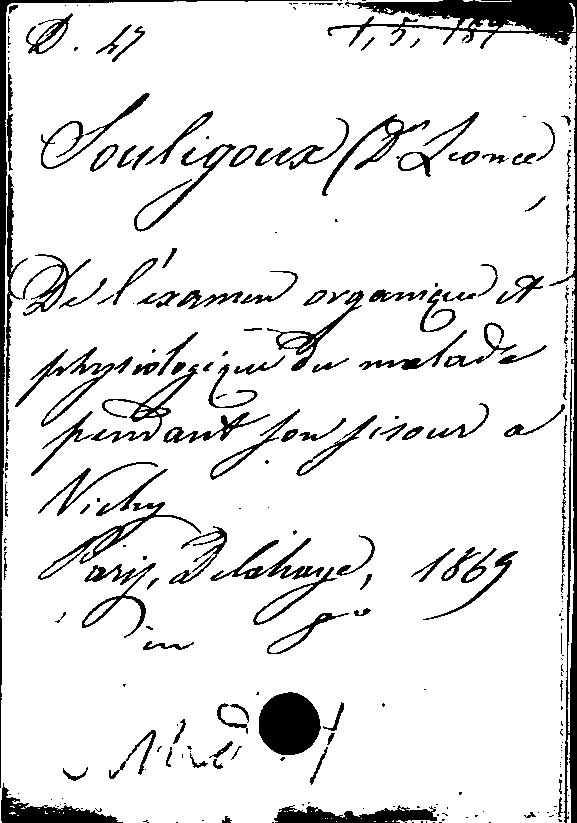 D. 47 1, 5, 187
Souligoux (Dr Léonce)
De l'éxamen organique et
physiologique du malade
pendant son séjour a
Vichy
Paris, Delahaye, 1869
in 8o